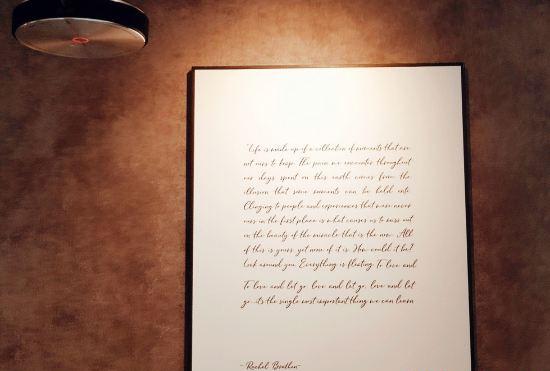 "Life is made up of a collection of moments that are
not ours to keep. The pain we encounter throughout
our days spent on this earth comes from the
illusion that some moments can be held onto.
Clinging to people and experiences that were never
ours in the first place is what causes us to miss out
on the beauty of the miracle that is the now. All
of this is yours, yet none of it is. How could it be?
Look around you. Everything is fleeting. To love and
To love and let go, love and let go, love and let
go...it's the single most important thing we can learn
- Rachel Brathen-